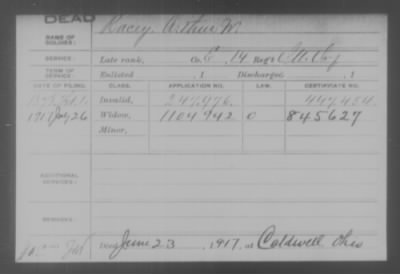 DEAD
NAME OF SOLDIER: Racey Arthur W.
SERVICE: Late rank, Co. E, 14 Reg't
TERM OF SERVICE: Enlisted , 1 Discharged , 1
DATE OF FILING. CLASS. APPLICATION NO. LAW. CERTIFICATE NO.
Invalid, 247,976 447,454
1917 July 26 Widow, 1104942 O 845627
Minor,
ADDITIONAL SERVICES:
REMARKS:
Died June 23, 1917, at Caldwell Ohio